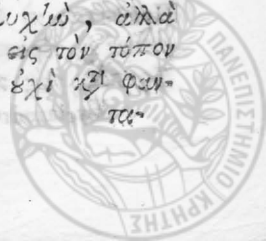 υχίω, ἀλλὰ
εἰς τὸν τύπον
ὐχὶ κτ̀ φαν-
τα-
ΠΑΝΕΠΙΣΤΗΜΙΟ ΚΡΗΤΗΣ